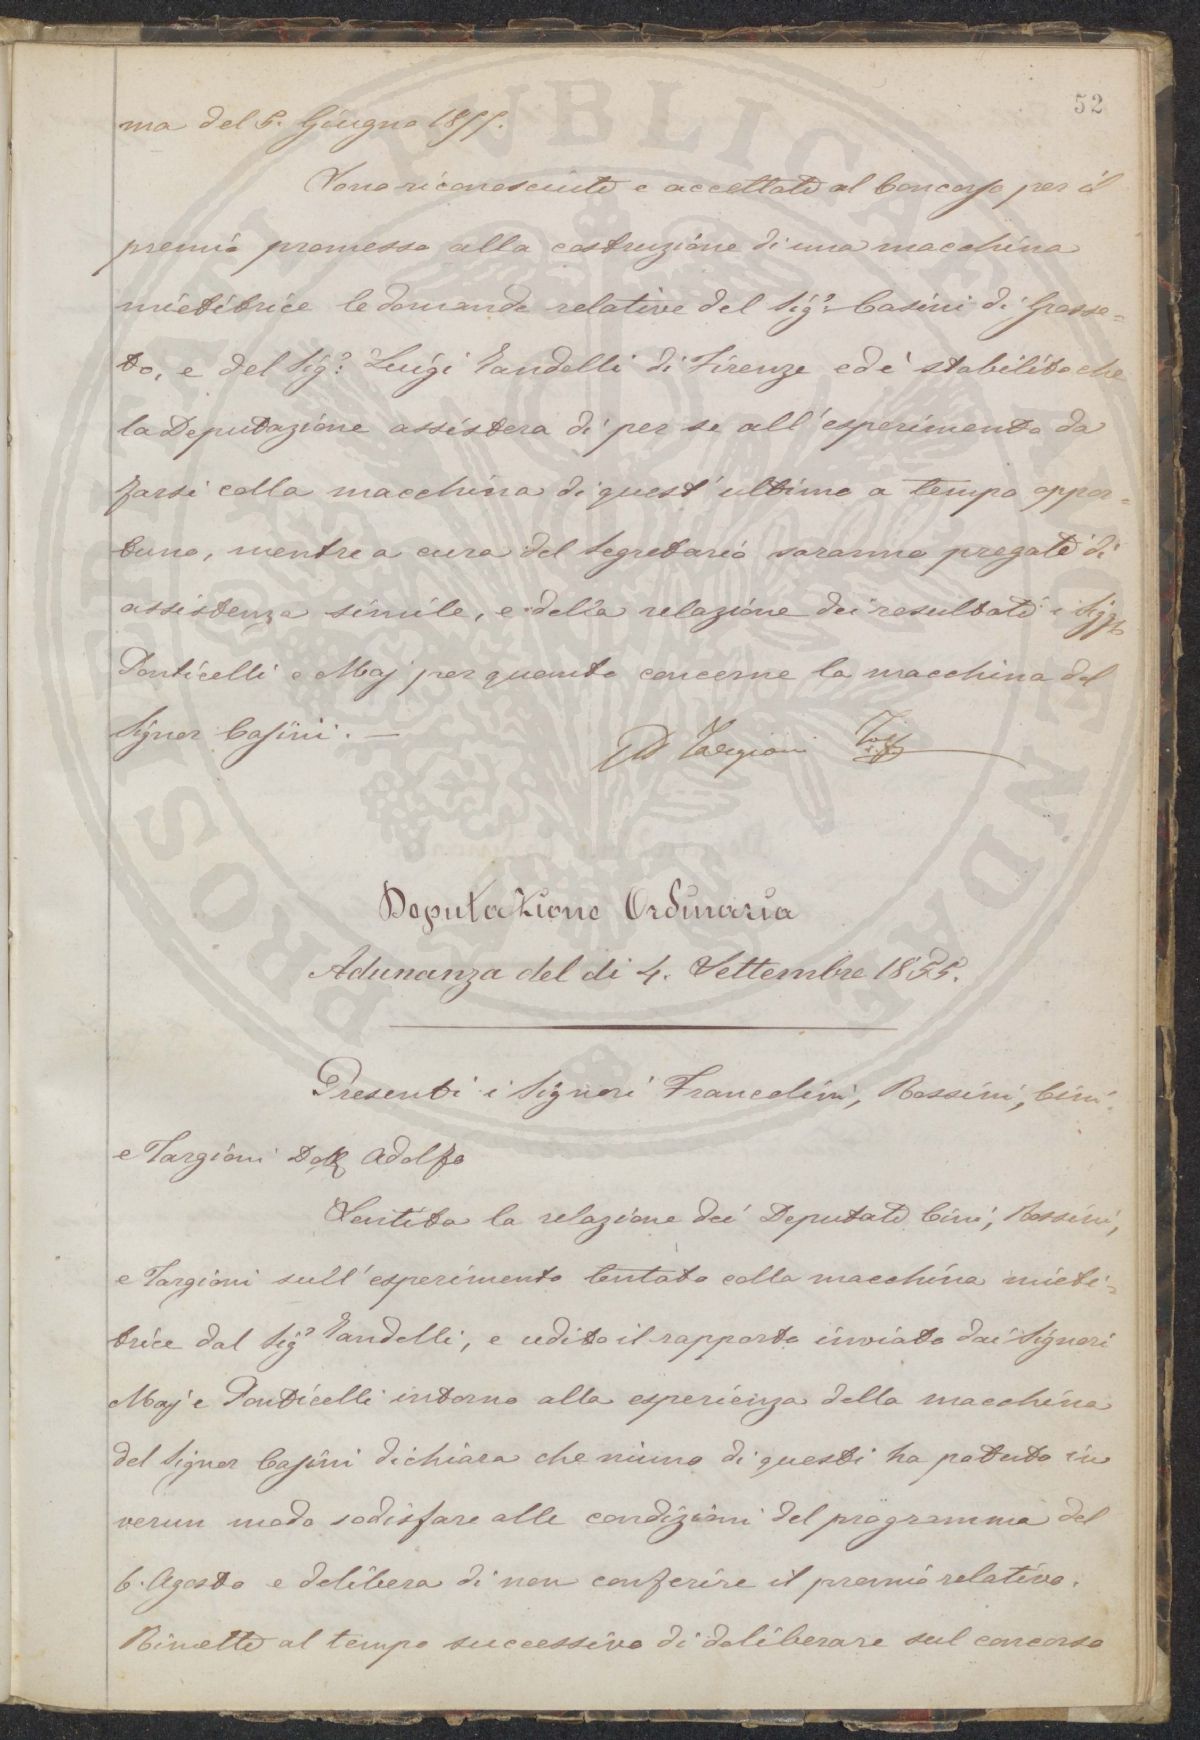 52
ma del 5. Giugno 1855.
Sono riconosciute e accettate al Concorso per il
premio promesso alla costruzione di una macchina
mietitrice le domande relative del Sig.r Casini di Grosse-
to, e del Sig.r Luigi Vandelli di Firenze ed è stabilito che
la Deputazione assistera di per se all'esperimento da
farsi colla macchina di quest'ultimo a tempo oppor-
tuno, mentre a cura del Segretario saranno pregati di
assistenza simile, e della relazione dei resultati i Sigg.ri
Ponticelli e Maj per quanto concerne la macchina del
Signor Casini. —
AD Targioni Tozz
Deputazione Ordinaria
Adunanza del di 4. Settembre 1855.
Presenti i Signori Francolini, Rossini, Cini
e Targioni Dott Adolfo
Sentita la relazione dei Deputati Cini, Rossini,
e Targioni sull'esperimento tentato colla macchina mieti-
trice dal Sig.r Vandelli, e udito il rapporto inviato dai Signori
Maj e Ponticelli intorno alla esperienza della macchina
del Signor Casini dichiara che niuno di questi ha potuto in
verun modo sodisfare alle condizioni del programma del
6. Agosto e delibera di non conferire il premio relativo.
Rimette al tempo successivo di deliberare sul concorso
PROSPERITATI PUBLICAE AUGENDAE